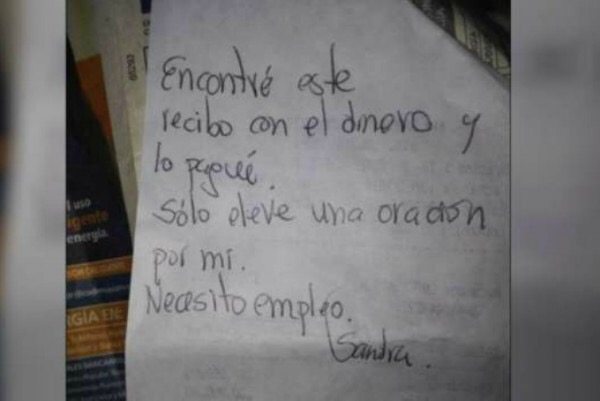 Encontré este
recibo con el dinero y
lo pagué.
Sólo eleve una oración
por mi.
Necesito empleo.
Sandra.
l uso
gente
energía.
GÍA ELÉ